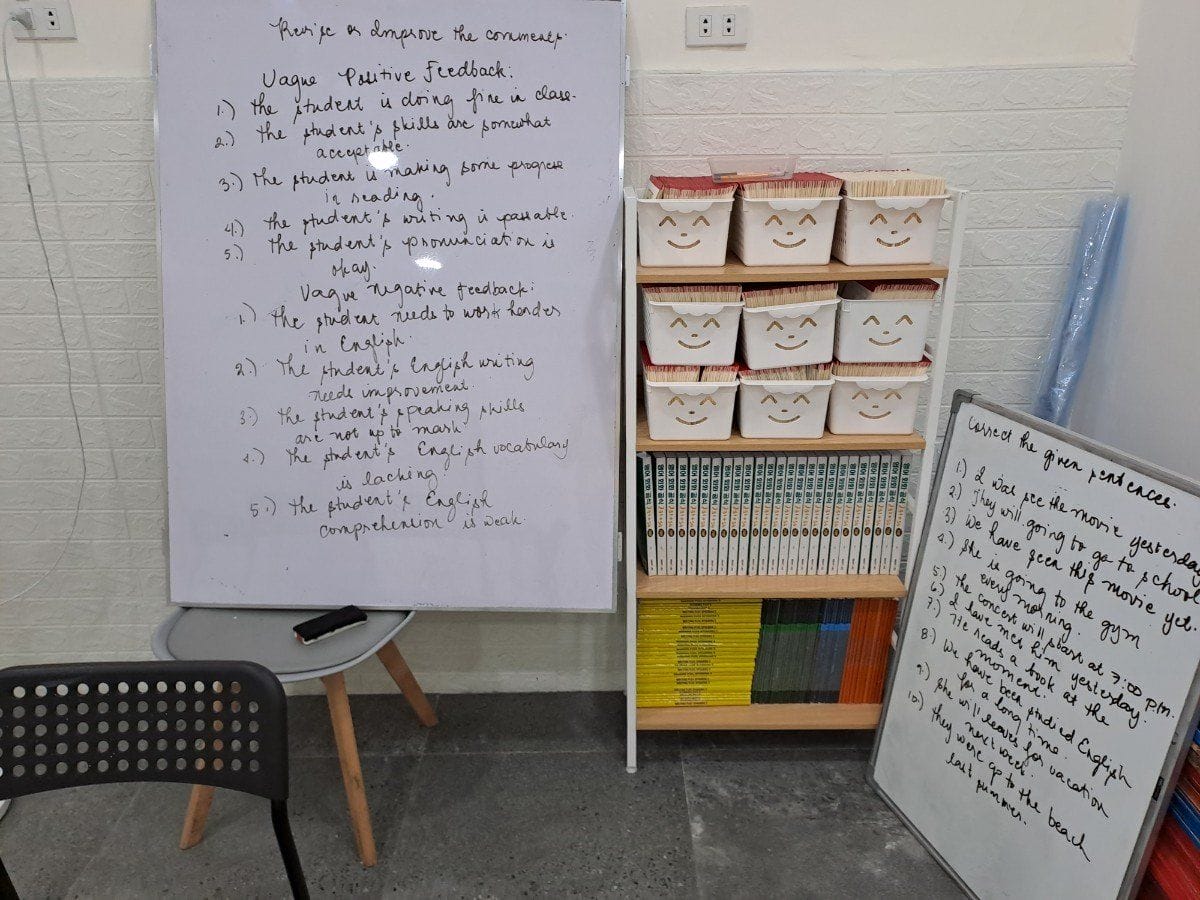 Revise or Improve the comments.
Vague Positive Feedback:
1.) The student is doing fine in class.
2.) The student's skills are somewhat
acceptable.
3.) The student is making some progress
in reading.
4.) The student's writing is passable.
5.) The student's pronunciation is
okay.
Vague Negative Feedback:
1.) The student needs to work harder
in English.
2.) The student's English writing
needs improvement.
3.) The student's speaking skills
are not up to mark.
4.) The student's English vocabulary
is lacking
5.) The student's English
comprehension is weak.
Correct the given sentences.
1.) I was see the movie yesterday
2.) They will going to go to school
3.) We have seen this movie yet.
4.) She is going to the gym
every morning.
5.) The concert will start at 7:00 p.m.
6.) I have met him yesterday.
7.) He reads a book at the
moment.
8.) We have been studied English
for a long time.
9.) She will leaves for vacation
next week.
10.) They were go to the beach
last summer.